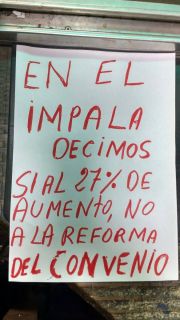 EN EL
iMPALA
DECIMOS
SI AL 27% DE
AUMENTO, NO
A LA REFORMA
DEL CONVENIO